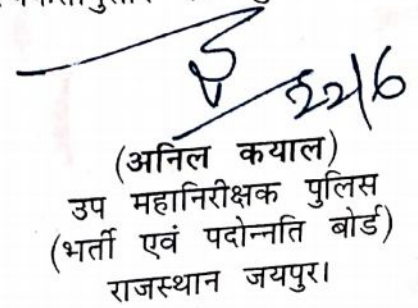 22/6
(अनिल कयाल)
उप महानिरीक्षक पुलिस
(भर्ती एवं पदोन्नति बोर्ड)
राजस्थान जयपुर।